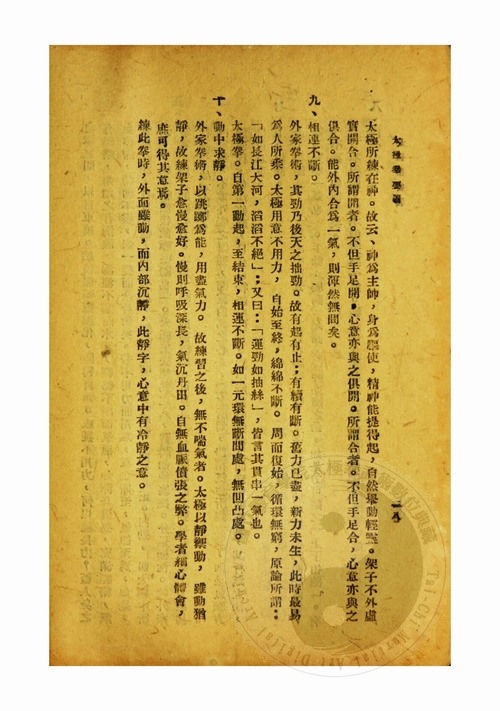 太極拳要義
一八
太極所練在神。故云、神爲主帥，身爲驅使，精神能提得起，自然舉動輕靈。架子不外虛
實開合。所謂開者。不但手足開，心意亦與之俱開。所謂合者。不但手足合，心意亦與之
俱合。能外內合爲一氣，則渾然無間矣。
九、相連不斷。
外家拳術，其勁乃後天之拙勁。故有起有止；有續有斷。舊力已盡，新力未生，此時最易
爲人所乘。太極用意不用力，自始至終，綿綿不斷。周而復始，循環無窮，原論所謂：
「如長江大河，滔滔不絕」；又曰：「運勁如抽絲」，皆言其貫串一氣也。
太極拳。自第一動起，至結束，相連不斷。如一元環無斷間處，無凹凸處。
十、動中求靜。
外家拳術，以跳躑爲能，用盡氣力。故練習之後，無不喘氣者。太極以靜禦動，雖動猶
靜，故練架子愈慢愈好。慢則呼吸深長，氣沉丹田。自無血脈僨張之弊。學者細心體會，
庶可得其意焉。
練此拳時，外面雖動，而內部沉靜，此靜字，心意中有冷靜之意。
Tai Chi Martial Art Digital